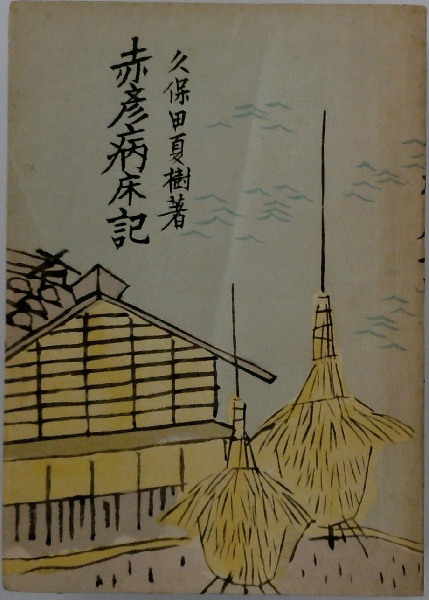 赤彦病床記
久保田夏樹著